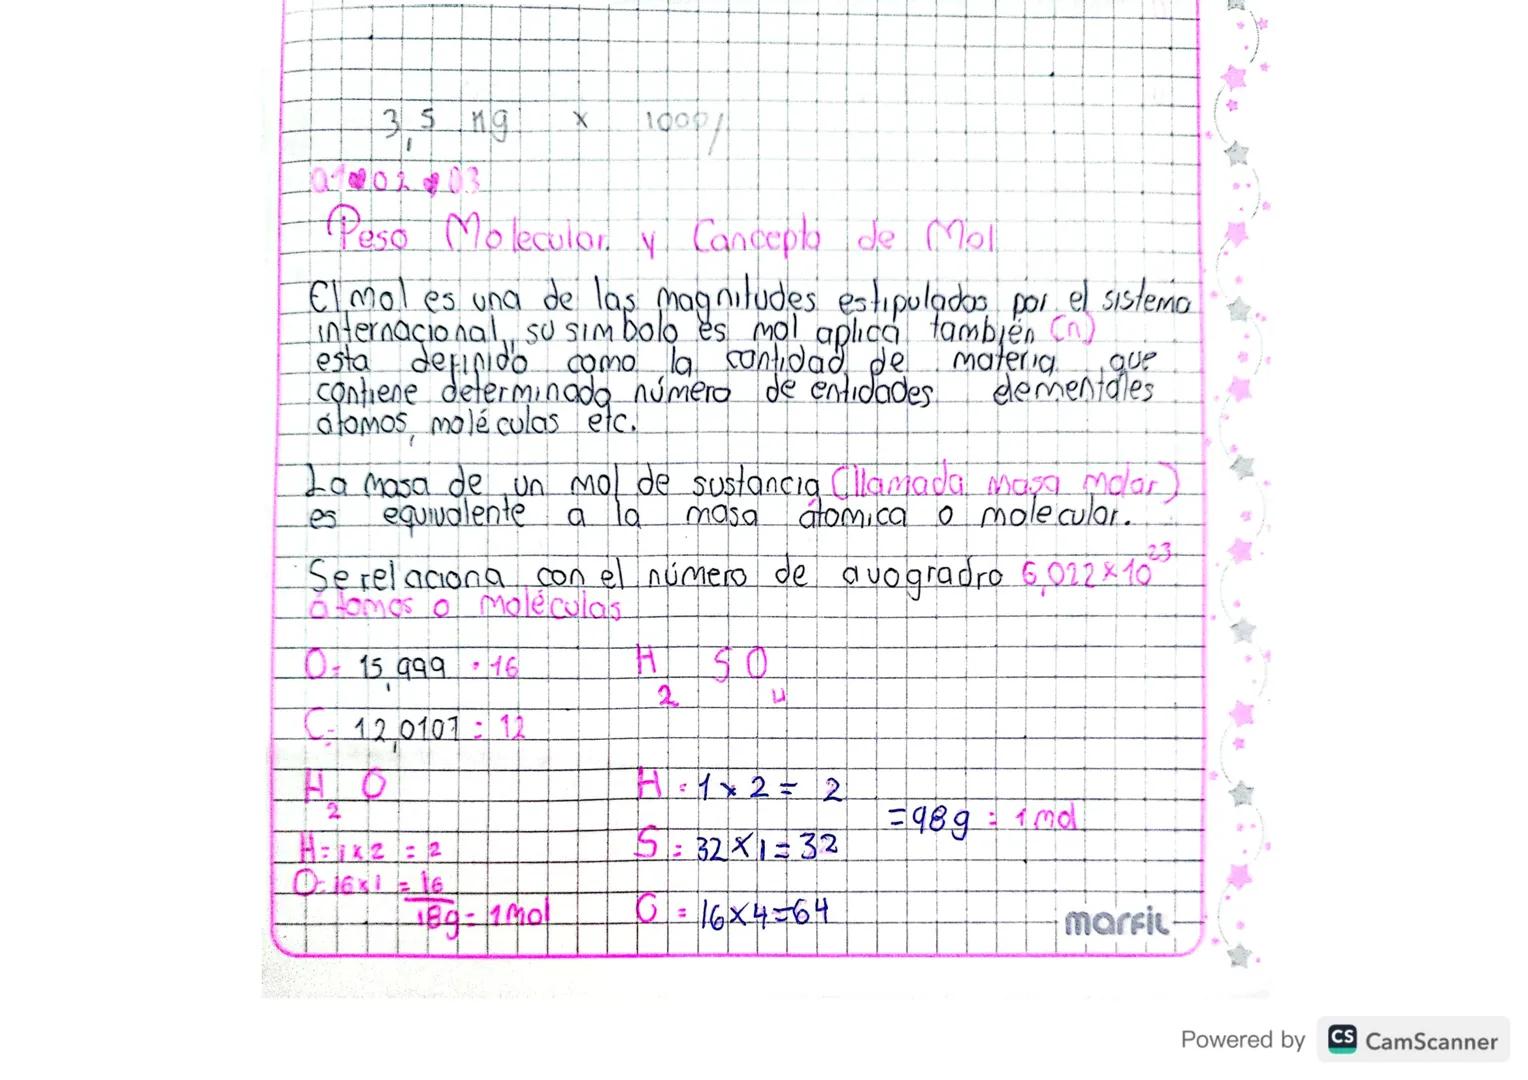 3,5 ng x 1000/
01 02 03
Peso Molecular y Concepto de Mol
El mol es una de las magnitudes estipuladas por el sistema
internacional, su simbolo es mol aplica también (n)
esta definido como la cantidad de materia que
contiene determinado número de entidades elementales
átomos, moléculas etc.
La masa de un mol de sustancia (llamada masa molar)
es equivalente a la masa átomica o molecular.
Se relaciona con el número de avogradro 6,022x10²³
átomos o moléculas
O= 15,999 · 16 H₂ SO₄
C= 12,0107 = 12
H₂O H = 1 x 2 = 2
=98g = 1 mol
H=1x2 = 2 S = 32x1=32
O=16x1 = 16
18g= 1mol O = 16x4=64
marfil
Powered by CS CamScanner